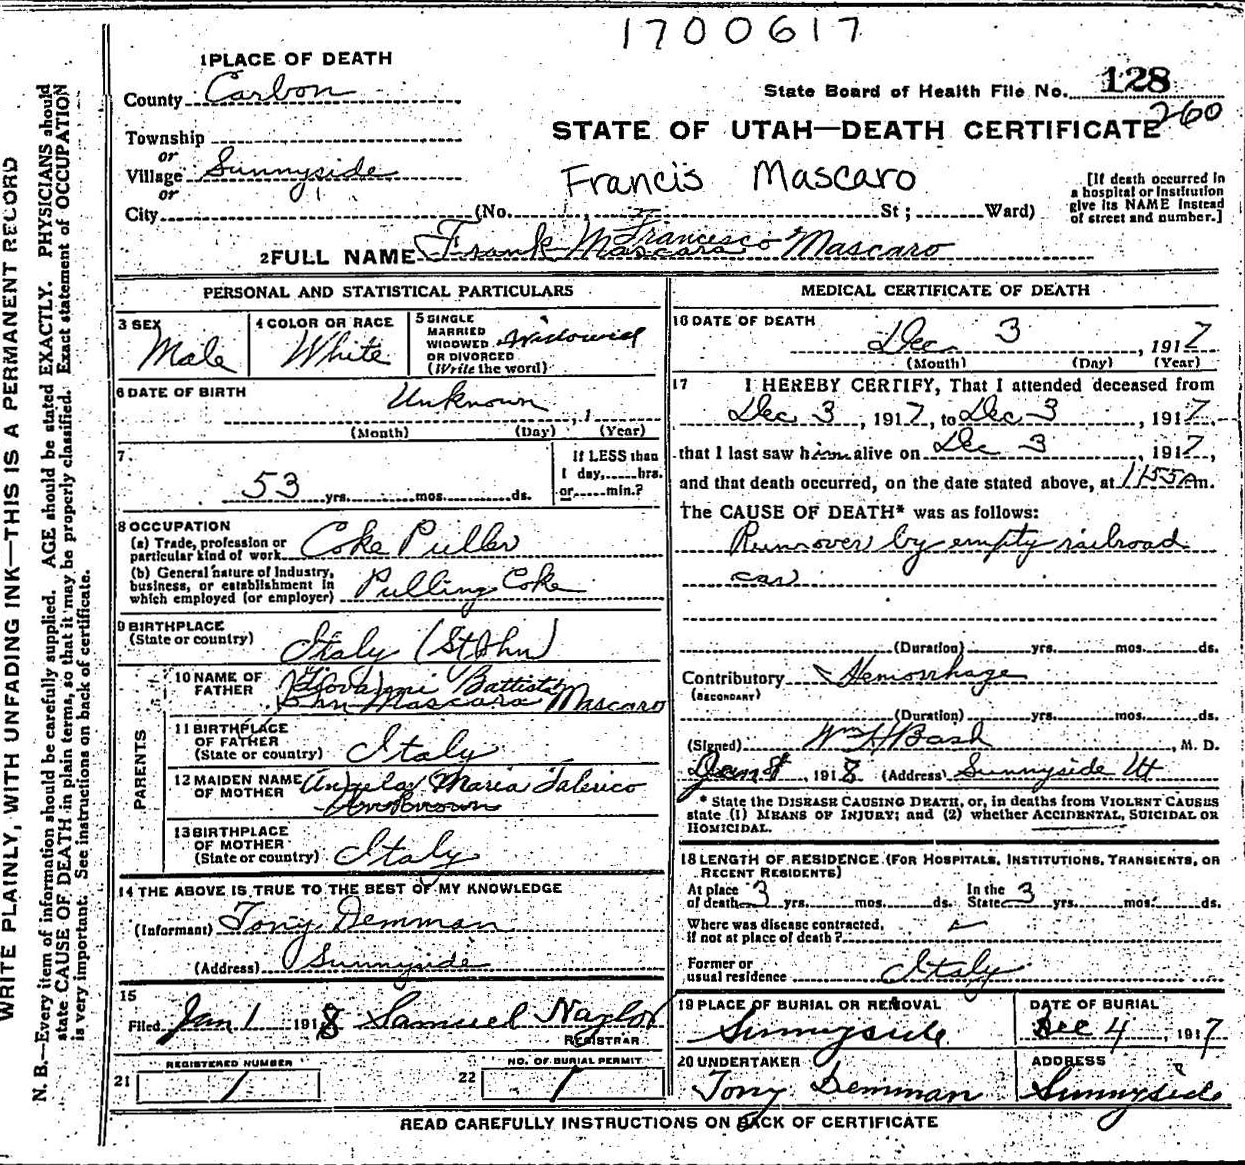 1700617
1 PLACE OF DEATH
County Carbon
State Board of Health File No. 128
260
Township
or
Village Sunnyside
or
City (No. St; Ward)
STATE OF UTAH—DEATH CERTIFICATE
Francis Mascaro
[If death occurred in
a hospital or institution
give its NAME instead
of street and number.]
Francesco
2 FULL NAME Frank Mascara Mascaro
PERSONAL AND STATISTICAL PARTICULARS
3 SEX
Male
4 COLOR OR RACE
White
5 SINGLE
MARRIED
WIDOWED
OR DIVORCED
(Write the word)
Widowed
6 DATE OF BIRTH
Unknown , 1
(Month) (Day) (Year)
7.
53 yrs. mos. ds.
If LESS than
1 day, hrs.
or min.?
8 OCCUPATION
(a) Trade, profession or
particular kind of work Coke Puller
(b) General nature of Industry,
business, or establishment in
which employed (or employer) Pulling Coke
9 BIRTHPLACE
(State or country) Italy (St John)
PARENTS
10 NAME OF
FATHER
Giovanni Battista
John Mascara Mascaro
11 BIRTHPLACE
OF FATHER
(State or country) Italy
12 MAIDEN NAME
OF MOTHER
Angela Maria Talerico
Unknown
13 BIRTHPLACE
OF MOTHER
(State or country) Italy
14 THE ABOVE IS TRUE TO THE BEST OF MY KNOWLEDGE
(Informant) Tony Demman
(Address) Sunnyside
15
Filed Jan 1 1918 Samuel Naylor
REGISTRAR
REGISTERED NUMBER
21 1
NO. OF BURIAL PERMIT
22 1
MEDICAL CERTIFICATE OF DEATH
16 DATE OF DEATH
Dec 3 , 1917
(Month) (Day) (Year)
17 I HEREBY CERTIFY, That I attended deceased from
Dec 3 , 1917, to Dec 3 , 1917,
that I last saw him alive on Dec 3 , 1917,
and that death occurred, on the date stated above, at 1155 Am.
The CAUSE OF DEATH* was as follows:
Run over by empty railroad
car
(Duration) yrs. mos. ds.
Contributory Hemorrhage
(SECONDARY)
(Duration) yrs. mos. ds.
(Signed) Wm H Bash , M. D.
Jan 8 , 1918 (Address) Sunnyside Ut
* State the DISEASE CAUSING DEATH, or, in deaths from VIOLENT CAUSES
state (1) MEANS OF INJURY; and (2) whether ACCIDENTAL, SUICIDAL OR
HOMICIDAL.
18 LENGTH OF RESIDENCE (FOR HOSPITALS, INSTITUTIONS, TRANSIENTS, OR
RECENT RESIDENTS)
At place
of death 3 yrs. mos. ds.
In the
State 3 yrs. mos. ds.
Where was disease contracted,
if not at place of death?
Former or
usual residence Italy
19 PLACE OF BURIAL OR REMOVAL
Sunnyside
DATE OF BURIAL
Dec 4 , 1917
20 UNDERTAKER
Tony Demman
ADDRESS
Sunnyside
READ CAREFULLY INSTRUCTIONS ON BACK OF CERTIFICATE
WRITE PLAINLY, WITH UNFADING INK—THIS IS A PERMANENT RECORD
N. B.—Every item of information should be carefully supplied. AGE should be stated EXACTLY. PHYSICIANS should
state CAUSE OF DEATH in plain terms, so that it may be properly classified. Exact statement of OCCUPATION
is very important. See instructions on back of certificate.